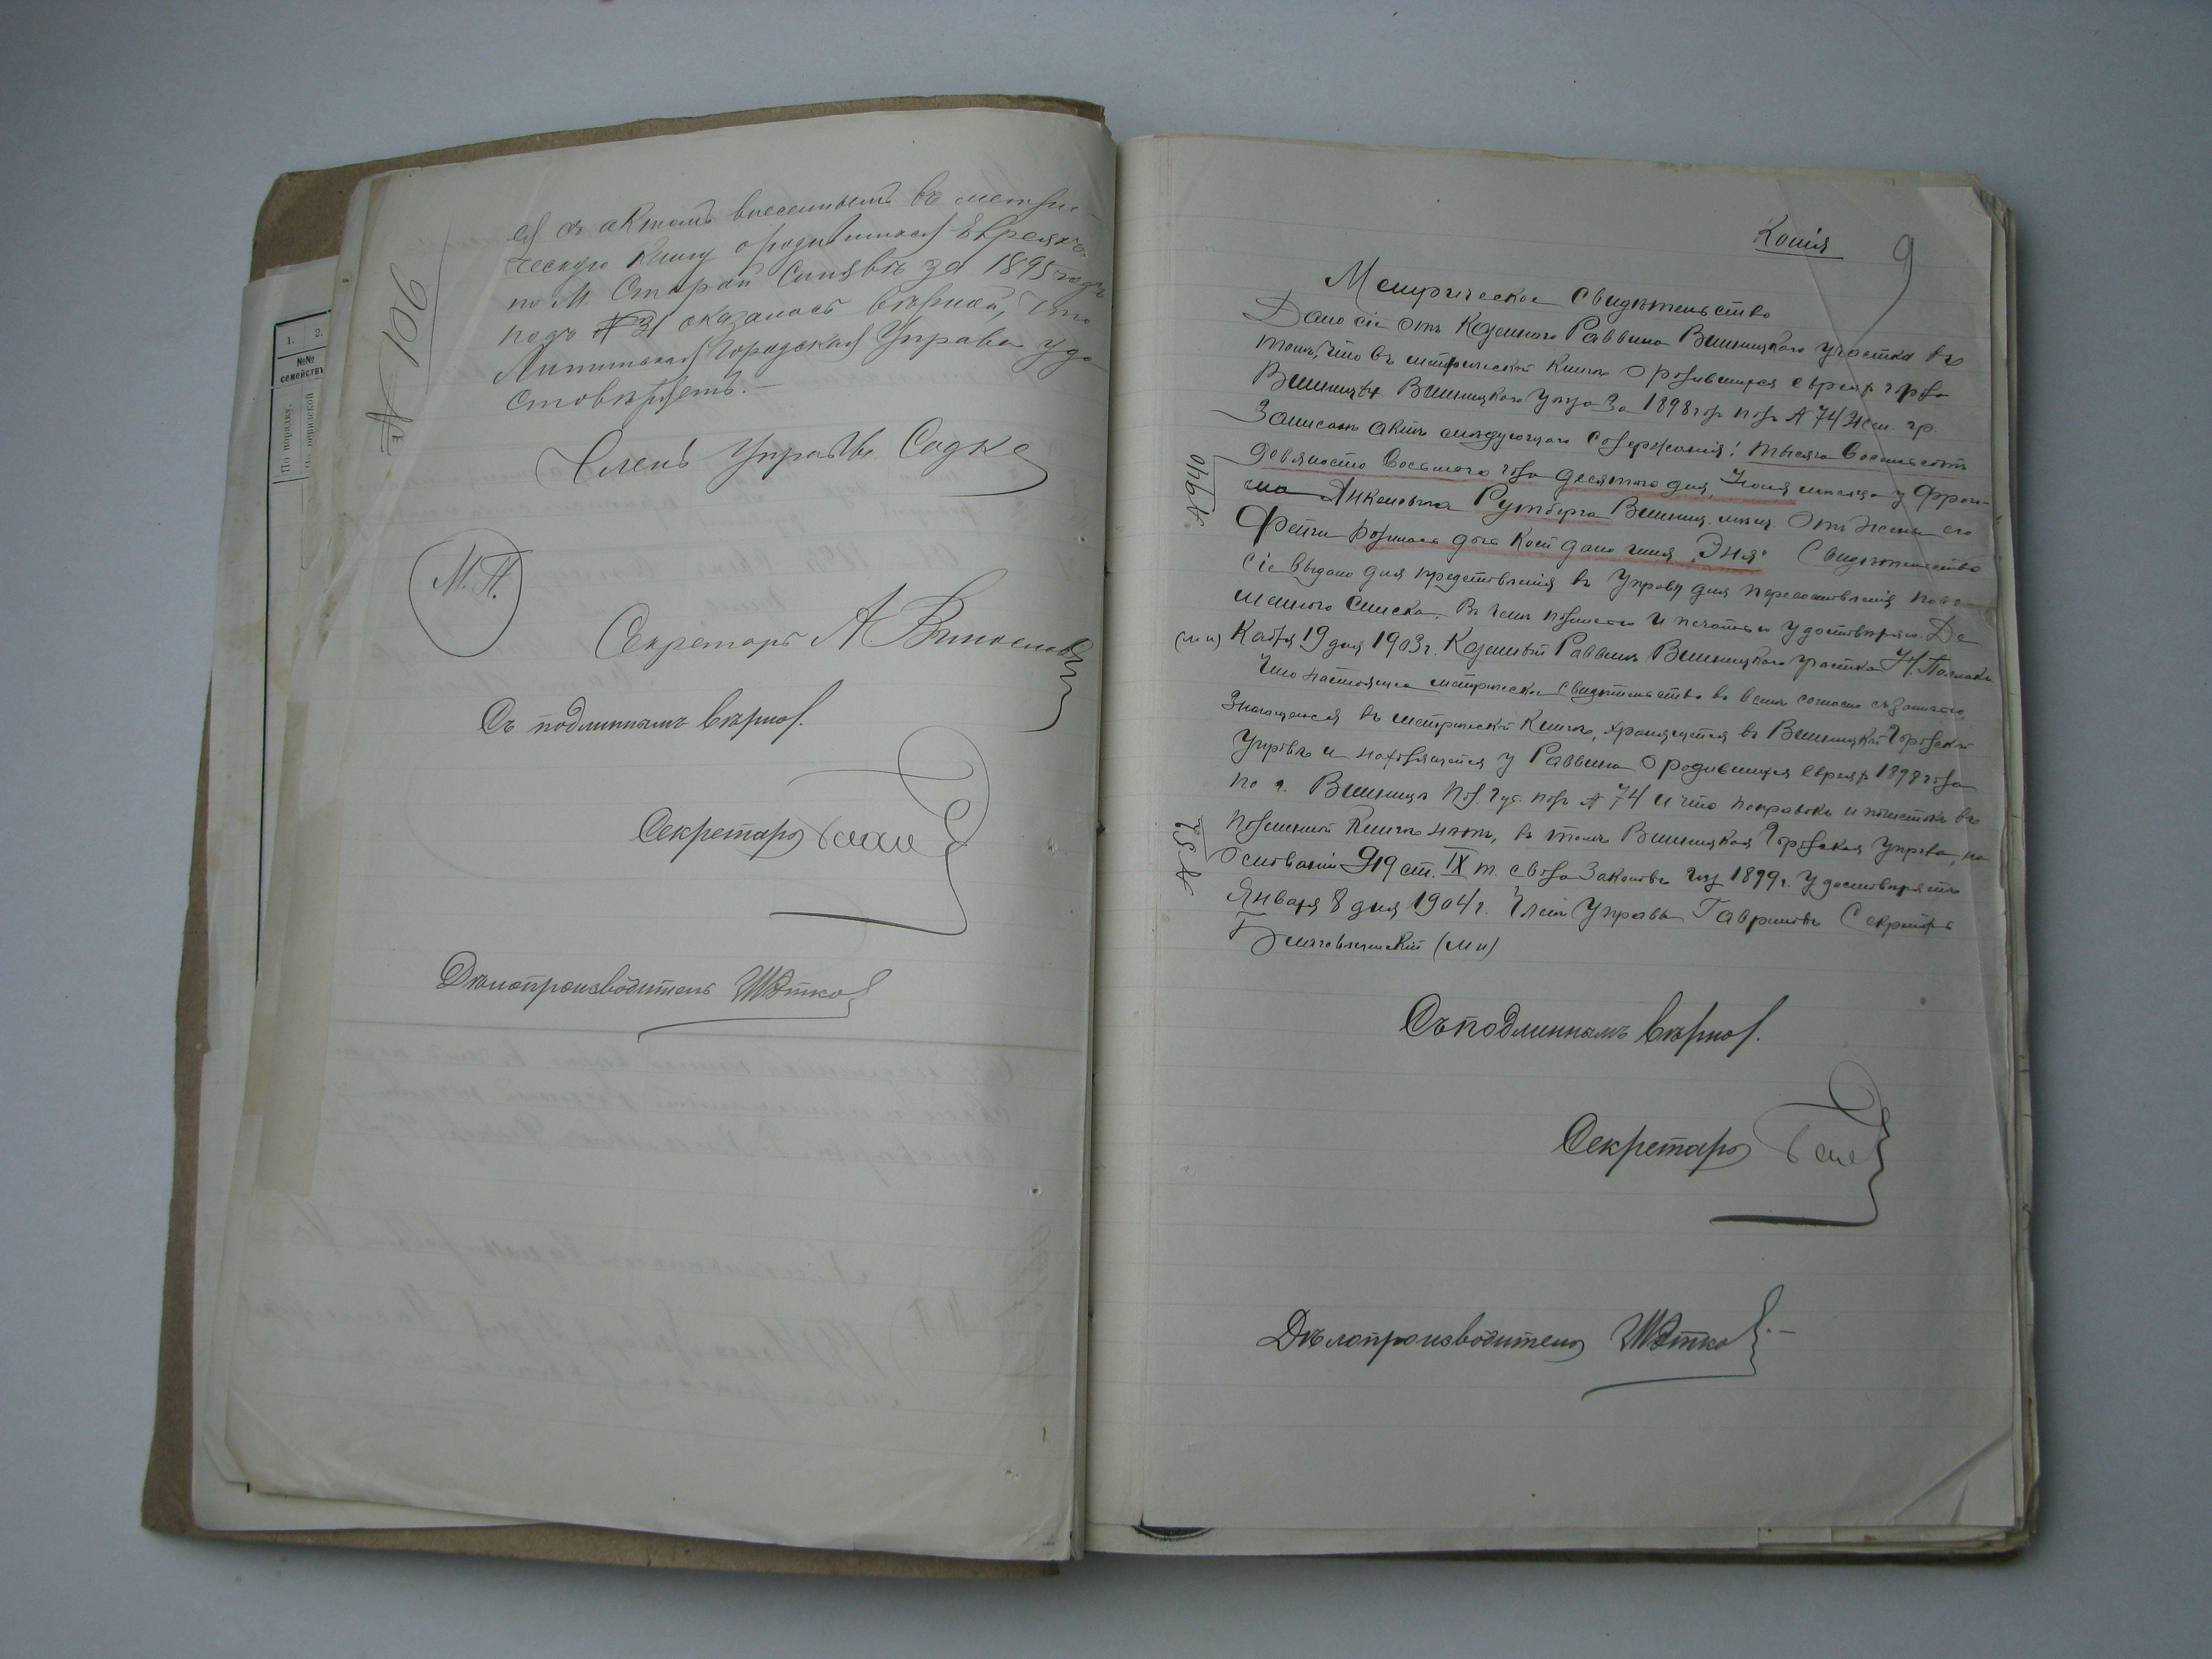 1. 2.
№№
семействъ
По порядку.
№ 106
ся съ актомъ внесеннымъ въ метри-
ческую книгу о родившихся Евреяхъ
по М. Старой Синявѣ за 1895 годъ
подъ № 31 оказалась вѣрной, что
Литинская Городская Управа удо
стовѣряетъ. —
Членъ Управы Садке
М. П.
Секретарь А.
Съ подлиннымъ вѣрно.
Секретарь
Дѣлопроизводитель
Копія
9
Метрическое свидѣтельство
Дано сіе отъ Казеннаго Раввина Винницкаго участка въ
томъ, что въ метрической книгѣ о родившихся евреяхъ города
Винницы Винницкаго уѣзда за 1898 годъ подъ № 74 жен. гр.
записанъ актъ слѣдующаго содержанія: тысяча восемьсотъ
девяносто восьмого года десятаго дня, Іюня мѣсяца у Фрои-
ма Анкелевича Рутберга Винниц. мѣщ. отъ жены его
Фейги родилась дочь коей дано имя "Эня" Свидѣтельство
сіе выдано для представленія въ Управу для
списка. Въ чемъ подписью и печатью удостовѣряю. Де
(м п) кабря 19 дня 1903 г. Казенный Раввинъ Винницкаго участка Н.
Что настоящее метрическое свидѣтельство во всемъ согласно съ записью,
значащейся въ метрической книгѣ, хранящейся въ Винницкой Городской
Управѣ и находящейся у Раввина о родившихся евреяхъ 1898 года
по г. Винницѣ Под. губ. подъ № 74 и что поправокъ и подчистокъ въ
подлинной книгѣ нѣтъ, въ томъ Винницкая Городская Управа, на
основаніи 919 ст. IX т. свода Законовъ изд 1899 г. удостовѣряетъ
Января 8 дня 1904 г. Членъ Управы Гавриловъ Секретарь
(М п)
№ 940
№ 52
Съ подлиннымъ вѣрно.
Секретарь
Дѣлопроизводитель